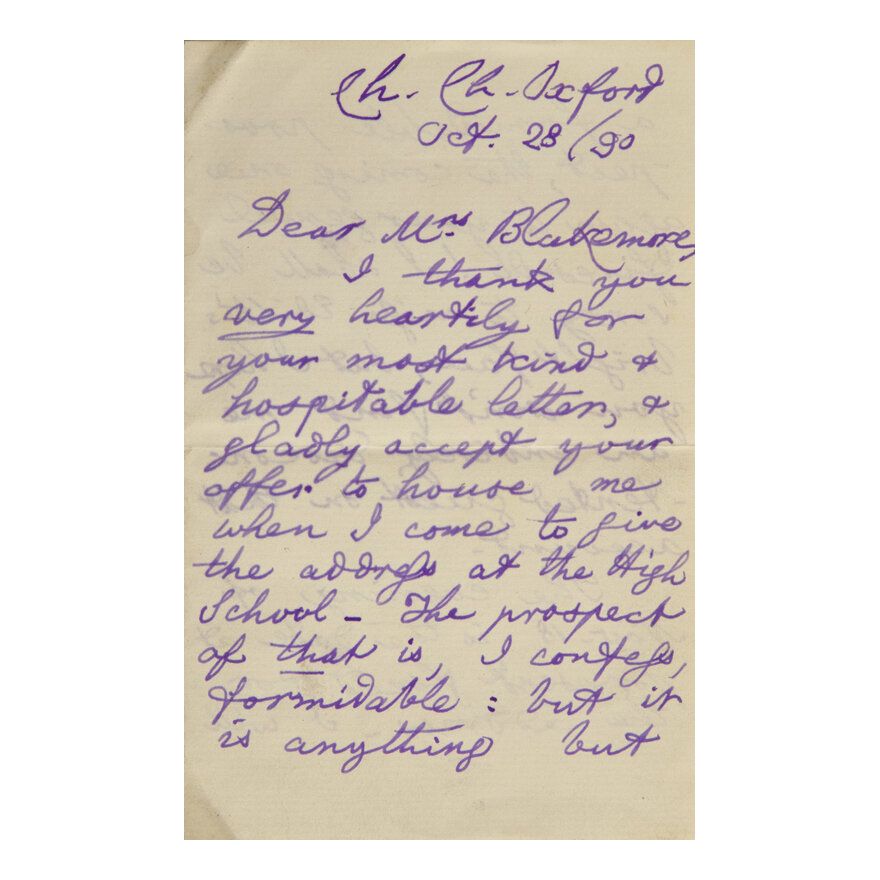 Ch. Ch. Oxford
Oct. 28/90
Dear Mrs. Blakemore,
I thank you
very heartily for
your most kind &
hospitable letter, &
gladly accept your
offer to house me
when I come to give
the address at the High
School – The prospect
of that is, I confess,
formidable: but it
is anything but